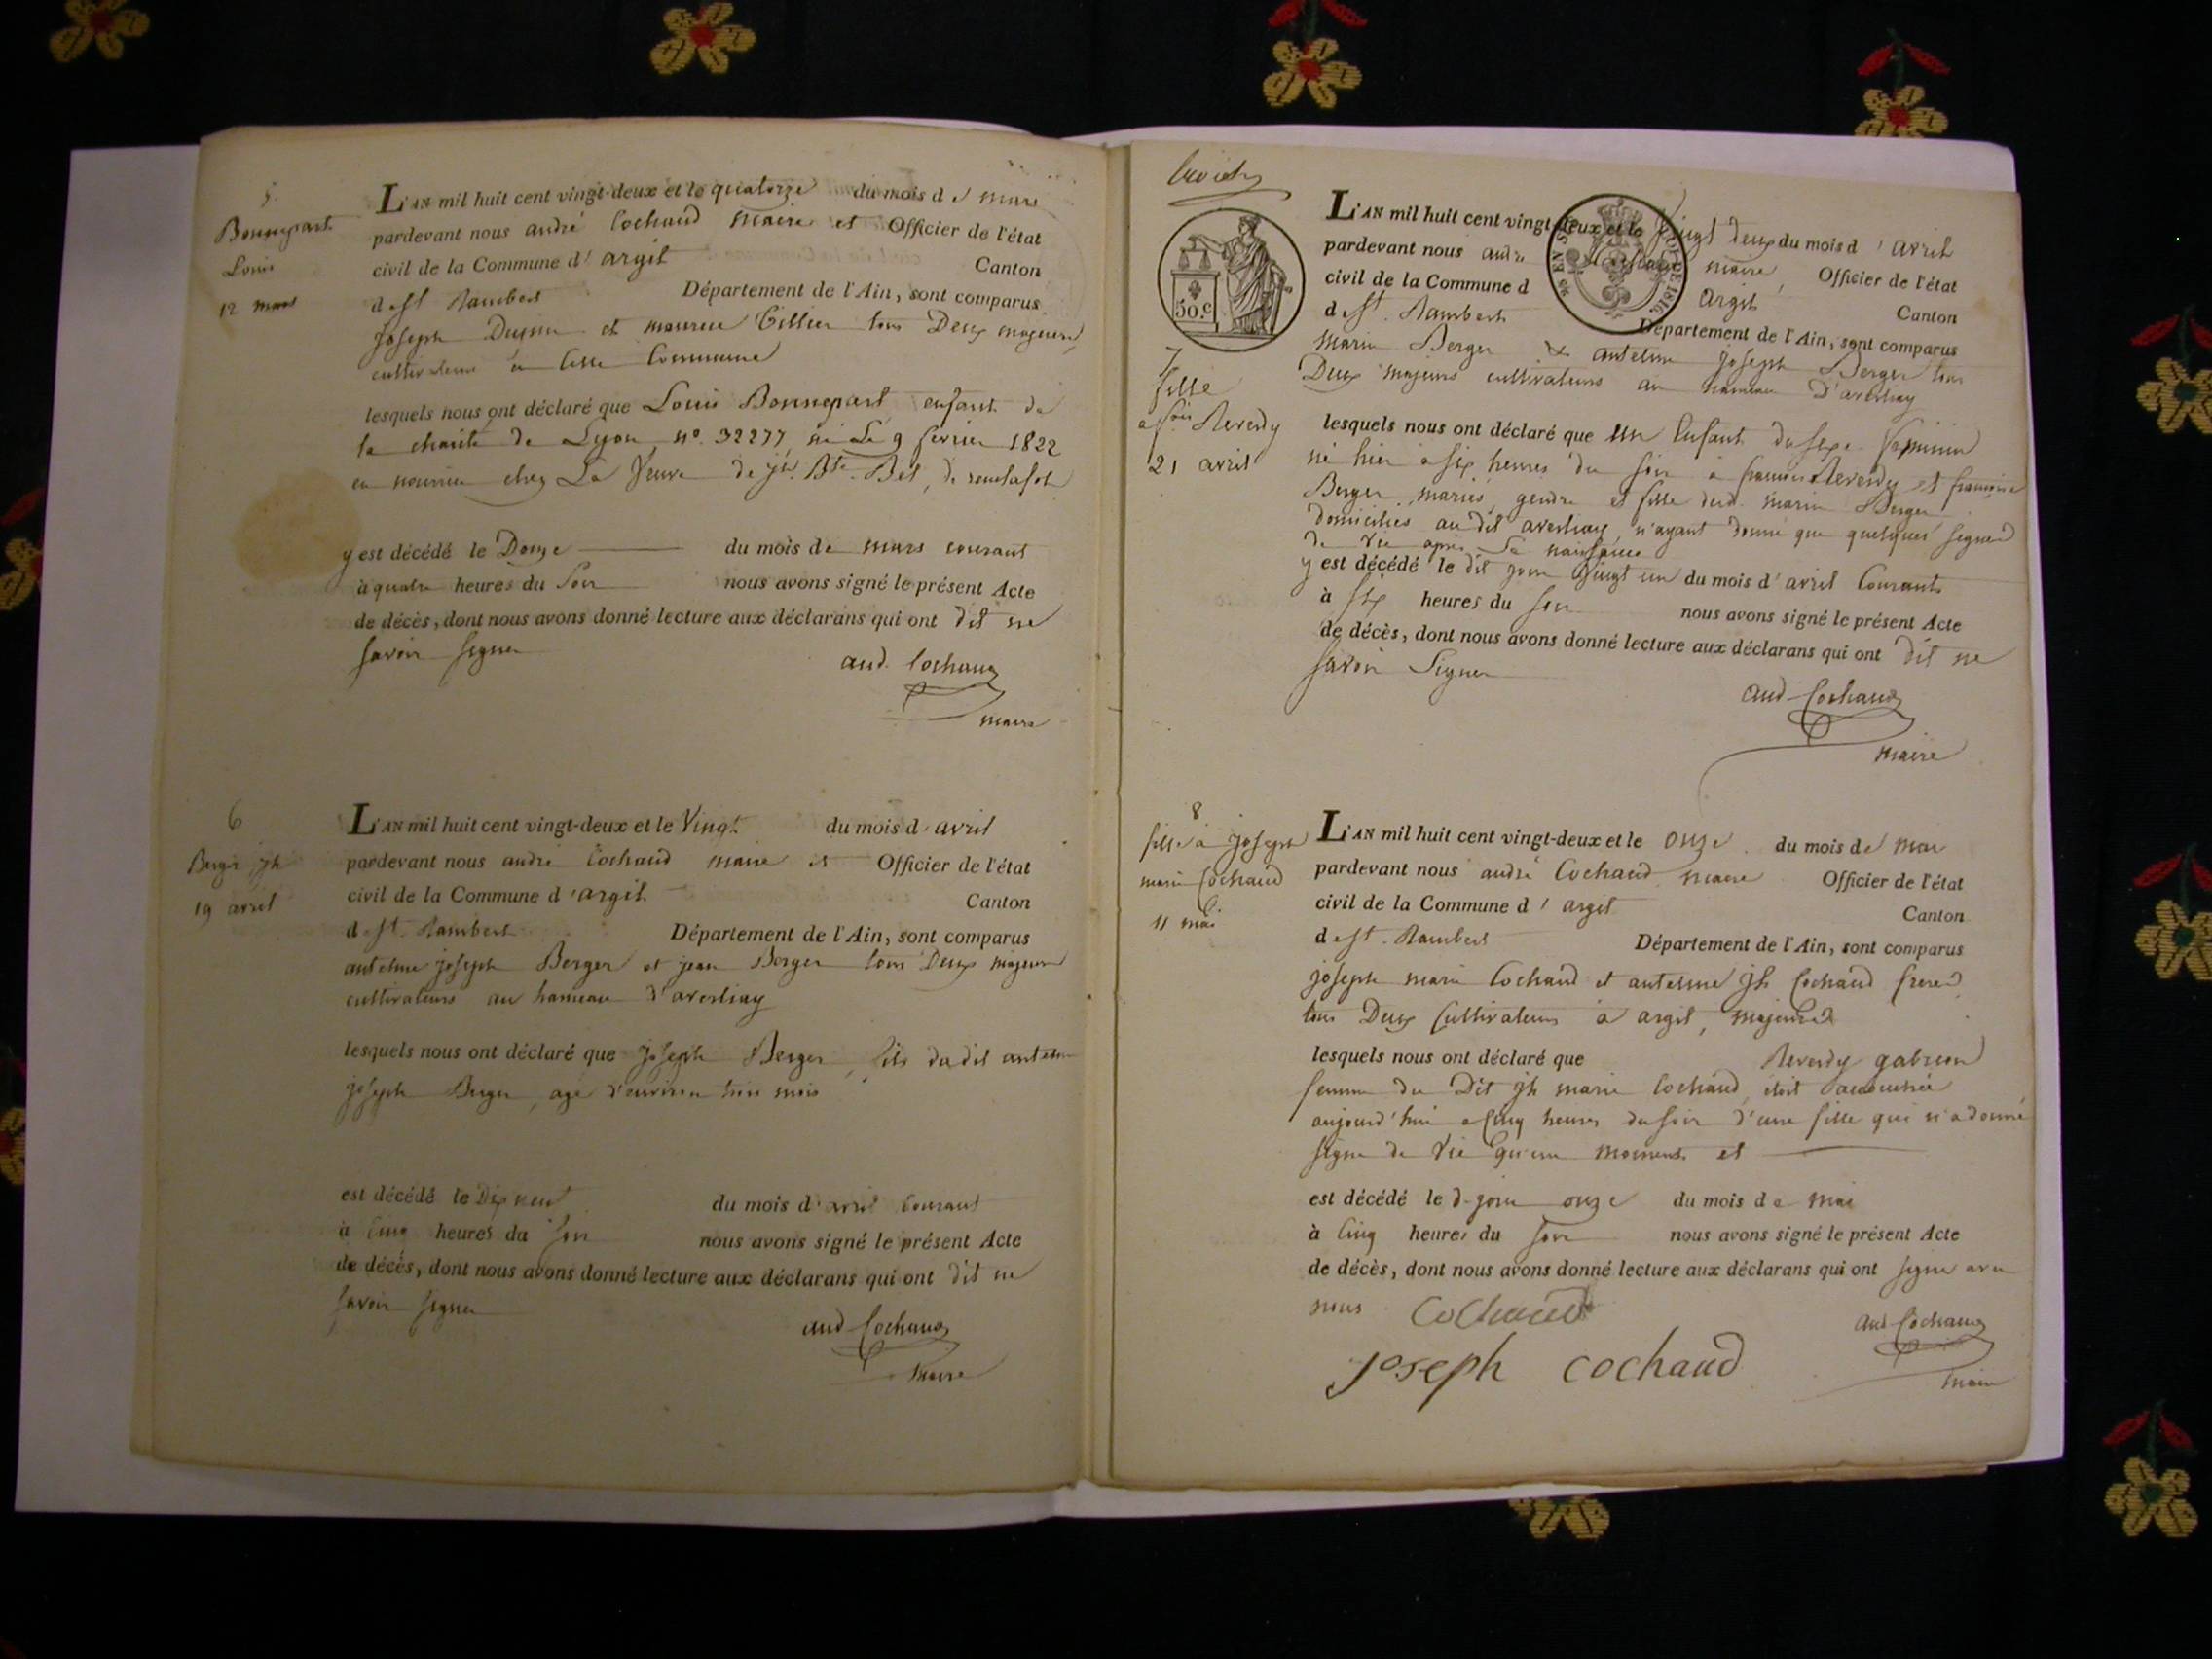 5.
Bonnepart
Louis
12 mars
L'AN mil huit cent vingt-deux et le quatorze du mois de mars
pardevant nous andré Cochaud maire et Officier de l'état
civil de la Commune d'argit Canton
de St Rambert Département de l'Ain, sont comparus
Joseph et Tellier tous Deux majeurs
cultivateurs en Cette Commune
lesquels nous ont déclaré que Louis Bonnepart enfant de
la charité de Lyon n°. 32277, né Le 9 fevrier 1822
en nourrice chez La Veuve de jh. Bte. Bel, de
y est décédé le Douze du mois de mars courant
à quatre heures du Soir nous avons signé le présent Acte
de décès, dont nous avons donné lecture aux déclarans qui ont dit ne
savoir signer
and. Cochaud
maire
6
Berger jh
19 avril
L'AN mil huit cent vingt-deux et le Vingt du mois d'avril
pardevant nous andré Cochaud maire et Officier de l'état
civil de la Commune d'argit Canton
de St. Rambert Département de l'Ain, sont comparus
antelme joseph Berger et jean Berger tous Deux majeurs
cultivateurs au hameau d'averliay
lesquels nous ont déclaré que joseph Berger, fils dudit antelme
joseph Berger, agé d'environ trois mois
est décédé le Dix neuf du mois d'avril Courant
à Cinq heures du soir nous avons signé le présent Acte
de décès, dont nous avons donné lecture aux déclarans qui ont dit ne
savoir signer
and Cochaud
Maire
50.c
7
fille
a fois Reverdy
21 avril
L'AN mil huit cent vingt-deux et le Vingt deux du mois d'avril
pardevant nous andré Cochaud maire, Officier de l'état
civil de la Commune d argit Canton
de St. Rambert Département de l'Ain, sont comparus
Marin Berger & antelme joseph Berger tous
Deux majeurs cultivateurs au hameau D'averliay
lesquels nous ont déclaré que un Enfant du sexe feminin
né hier à six heures du soir à francois Reverdy et francoise
Berger mariés, gendre et fille dud. marin Berger
domiciliés au dit averliay n'ayant donné que quelques signes
de vie après Sa naissance
y est décédé le dit jour Vingt un du mois d'avril Courant
à six heures du soir nous avons signé le présent Acte
de décès, dont nous avons donné lecture aux déclarans qui ont dit ne
savoir Signer
and Cochaud
maire
8
fille à joseph
marie Cochaud
11 mai
L'AN mil huit cent vingt-deux et le onze du mois de mai
pardevant nous andré Cochaud maire Officier de l'état
civil de la Commune d'argit Canton
de St. Rambert Département de l'Ain, sont comparus
joseph marie Cochaud et antelme jh Cochaud freres
tous Deux Cultivateurs à argit, majeurs
lesquels nous ont déclaré que Reverdy
femme du Dit jh marie Cochaud, étoit accouchée
aujourd'hui a Cinq heures du soir d'une fille qui n'a donné
signe de Vie qu'un moment et
est décédé le d. jour onze du mois de mai
à Cinq heures du soir nous avons signé le présent Acte
de décès, dont nous avons donné lecture aux déclarans qui ont signé avec
nous Cochaud
and Cochaud
joseph cochaud
maire